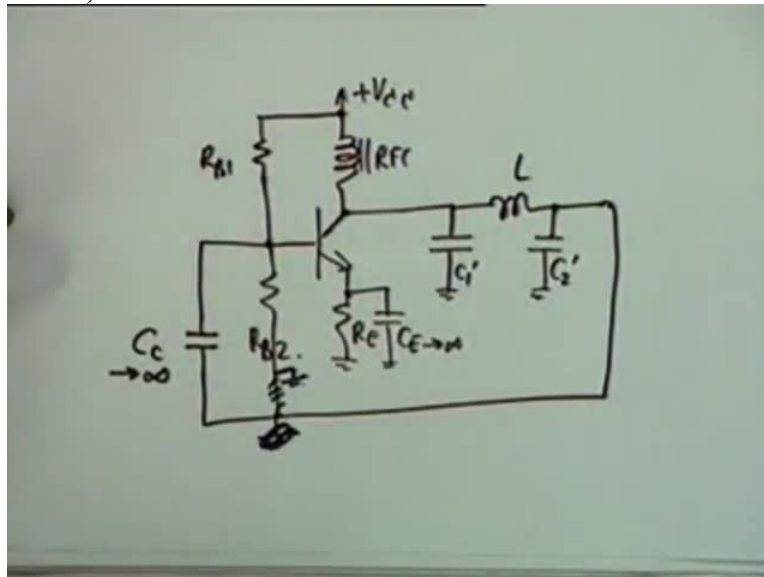 +Vcc
RB1
RFC
L
C1'
C2'
Cc
→∞
RB2.
RE
CE→∞